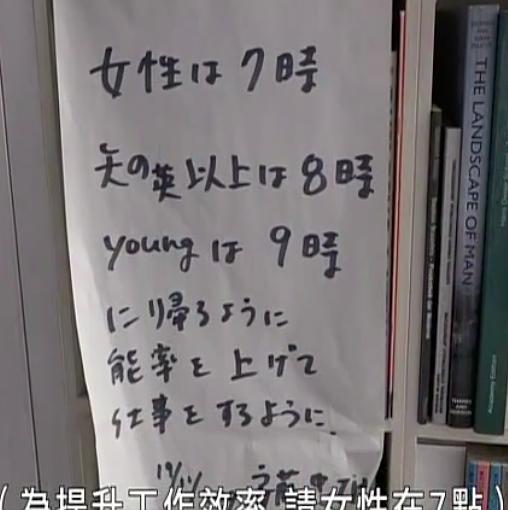 女性は7時
矢の英以上は8時
youngは9時
に帰るように
能率を上げて
仕事をするように
THE LANDSCAPE OF MAN
(為提升工作效率 請女性在7點)